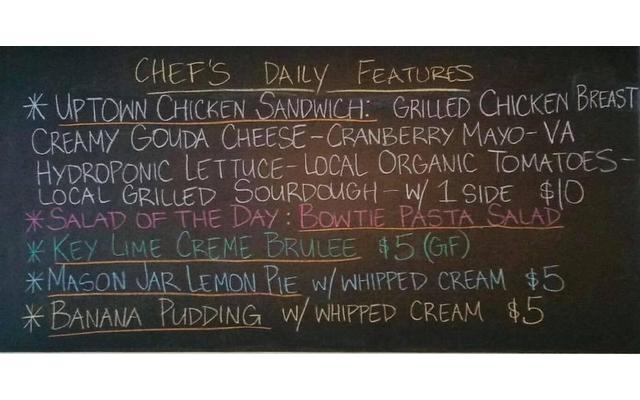 CHEF'S DAILY FEATURES
* UPTOWN CHICKEN SANDWICH: GRILLED CHICKEN BREAST
CREAMY GOUDA CHEESE - CRANBERRY MAYO - VA
HYDROPONIC LETTUCE - LOCAL ORGANIC TOMATOES -
LOCAL GRILLED SOURDOUGH - W/ 1 SIDE $10
* SALAD OF THE DAY: BOWTIE PASTA SALAD
* KEY LIME CREME BRULEE $5 (GF)
* MASON JAR LEMON PIE W/ WHIPPED CREAM $5
* BANANA PUDDING W/ WHIPPED CREAM $5